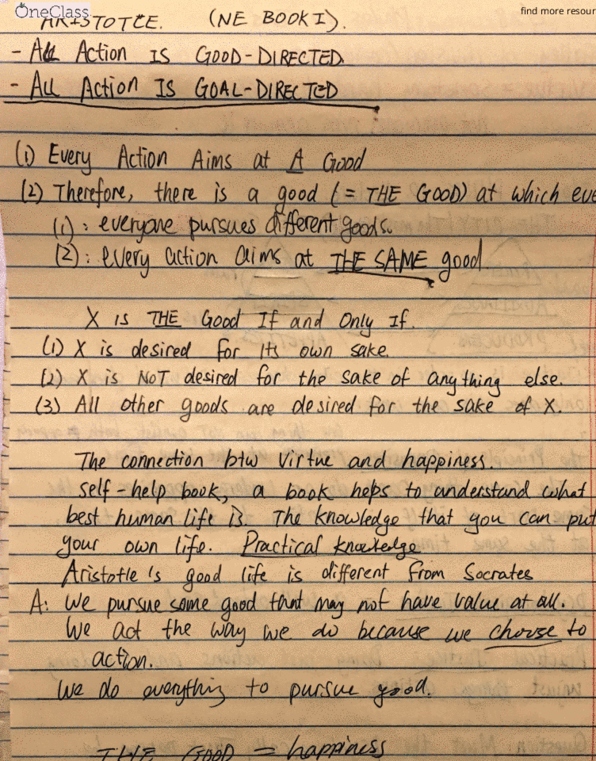 OneClass
find more resour
ARISTOTLE. (NE BOOK I).
- All Action IS GOOD-DIRECTED
- All Action IS GOAL-DIRECTED
(1) Every Action Aims at A Good
(2) Therefore, there is a good (= THE GOOD) at which eve
(1): everyone pursues different goods.
(2): every action aims at THE SAME good.
X is THE Good If and Only If.
(1) X is desired for its own sake.
(2) X is NOT desired for the sake of anything else.
(3) All other goods are desired for the sake of X.
The connection btw virtue and happiness.
self-help book, a book helps to understand what
best human life is. The knowledge that you can put
your own life. Practical knowledge
Aristotle's good life is different from Socrates
A: We pursue some good that may not have value at all.
We act the way we do because we choose to
action.
We do everything to pursue good.
THE GOOD = happiness